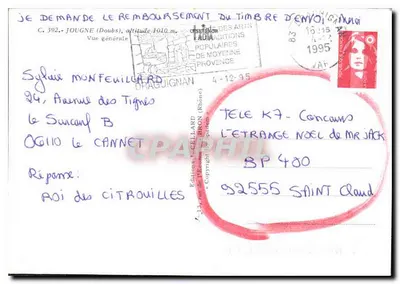 JE DEMANDE LE REMBOURSEMENT DU TIMBRE D'ENVOI, Merci
C. 392. - JOUGNE (Doubs), altitude 1010 m.
Vue générale
DES ARTS
TRADITIONS
POPULAIRES
DE MOYENNE
PROVENCE
DRAGUIGNAN
4-12-95
1995
VAR
Sylvie MONTEUILLARD
24, Avenue des Tignes
le Surcouf B
06110 le CANNET
Réponse:
ROI des CITROUILLES
TELE K7 - Concours
L'ETRANGE NOEL de MR JACK
BP 400
92555 SAINT Cloud
CPAPHIL